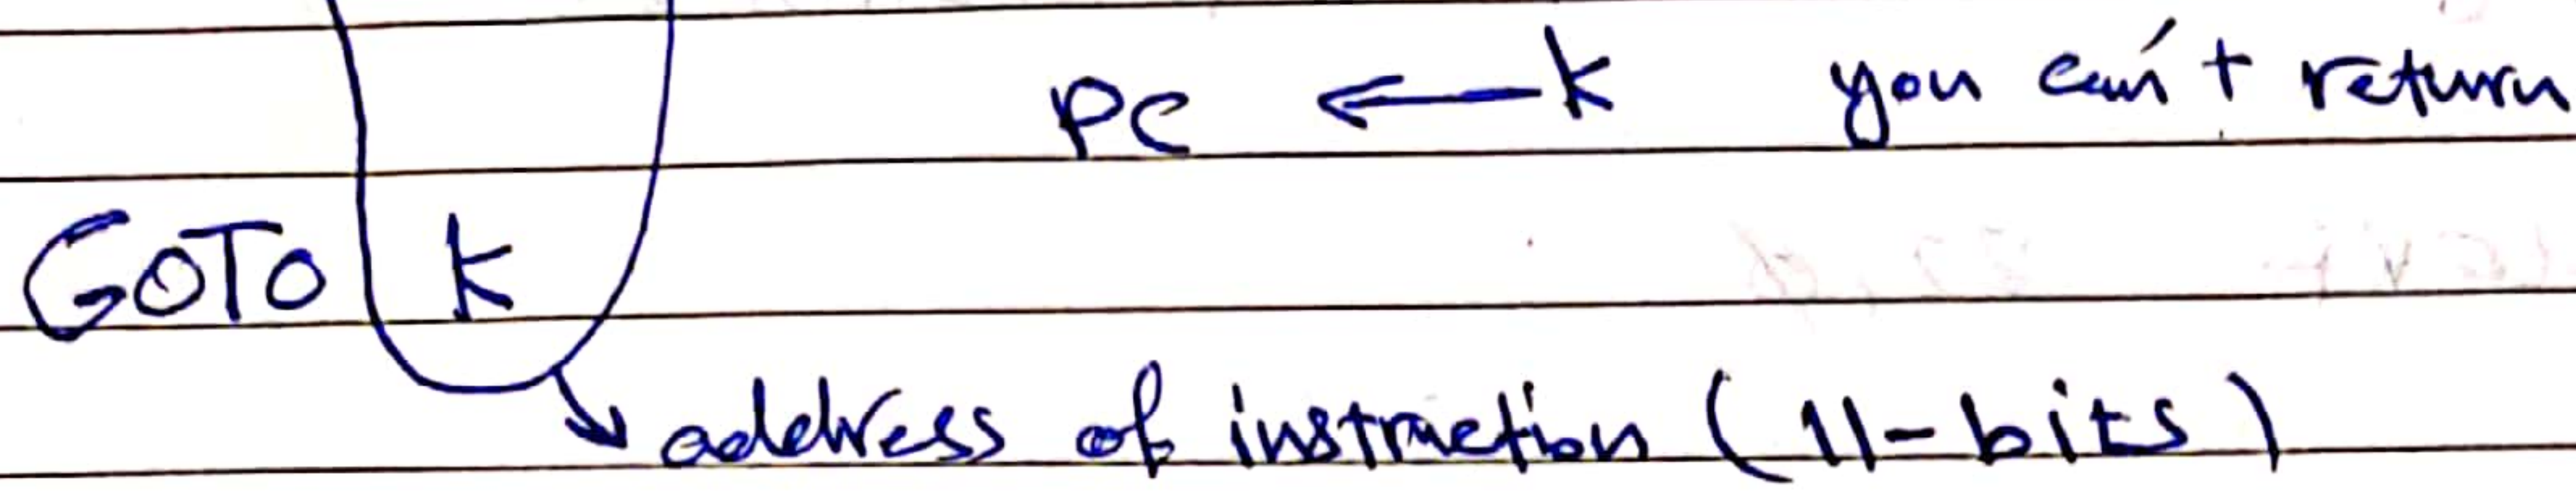 PC ← k you can't return
GOTO k
address of instraction (11-bits)